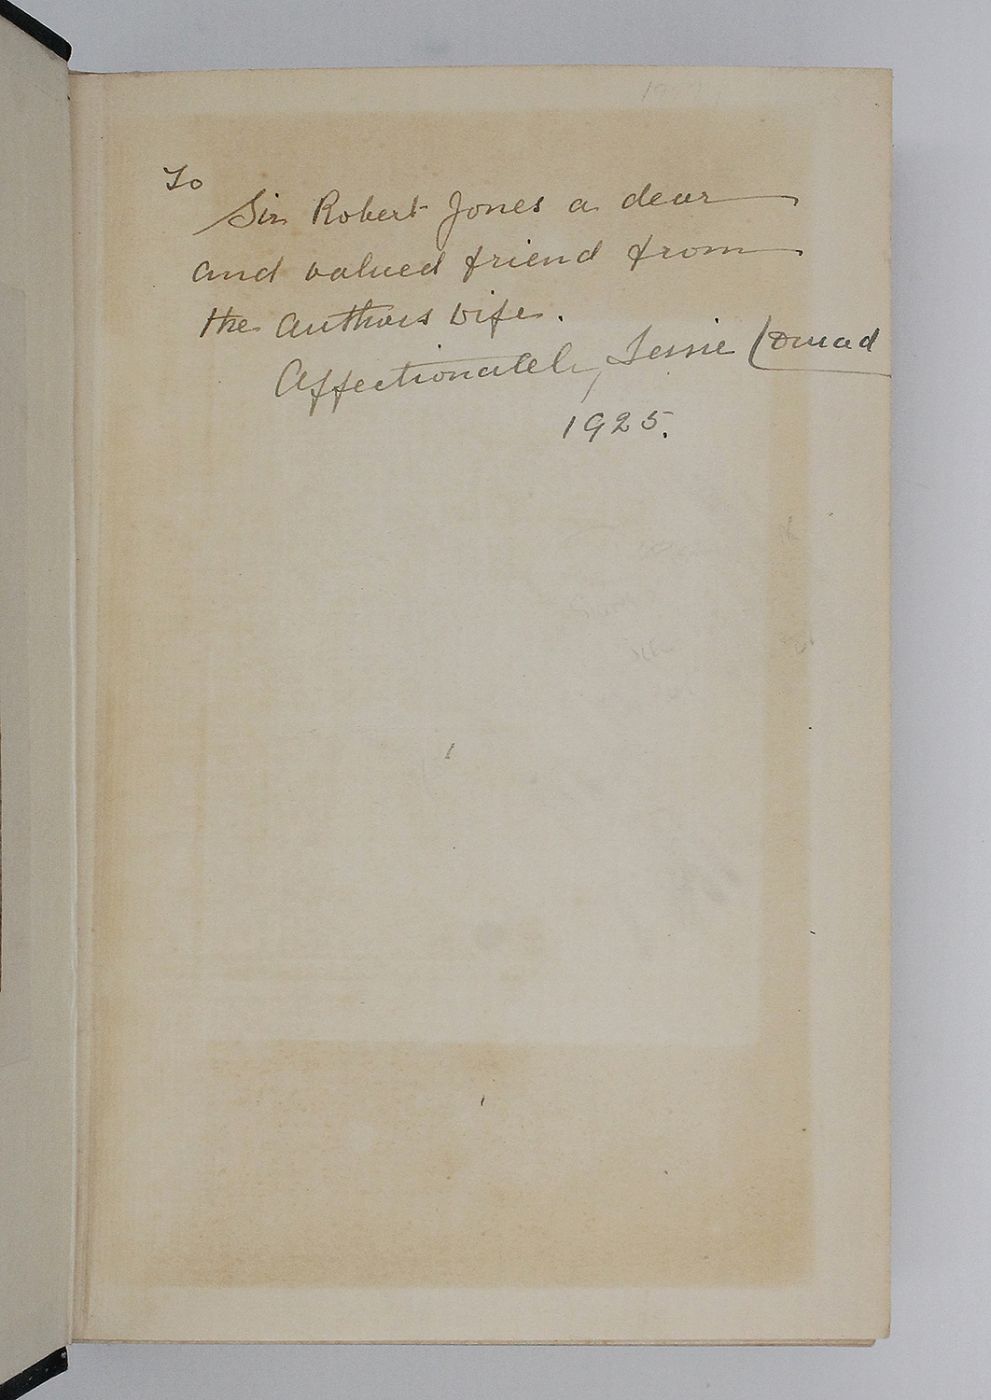 To
Sir Robert Jones a dear
and valued friend from
the authors wife.
Affectionately Jessie Conrad
1925.